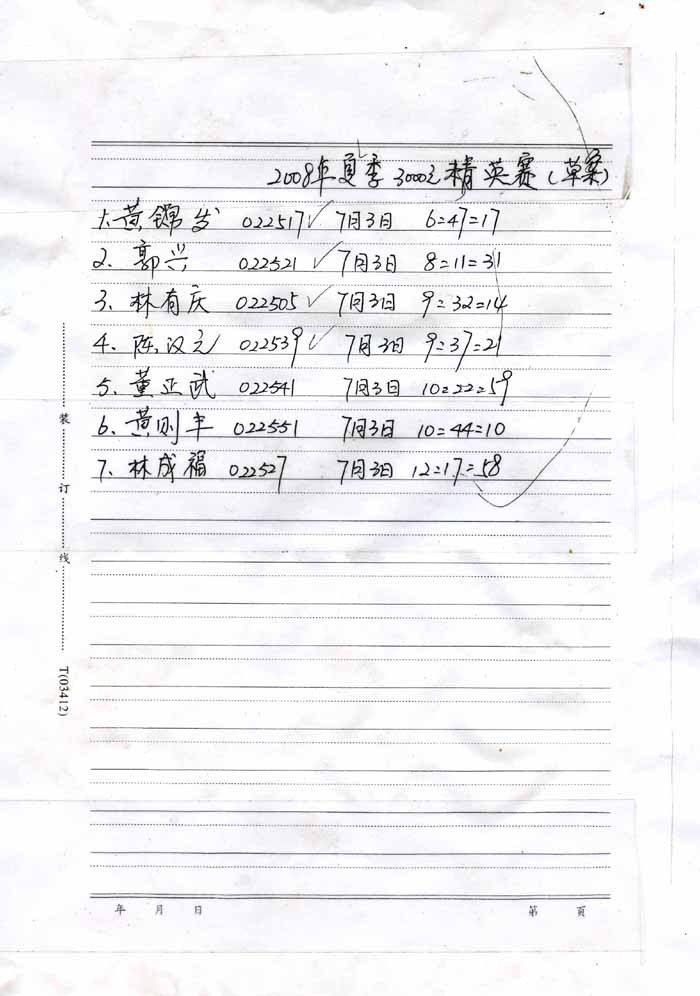 2008年夏季3000元精英赛(草案)
1、黄锦发 022517✓ 7月3日 6=47=17
2、郭兴 022521✓ 7月3日 8=11=31
3、林有庆 022505✓ 7月3日 9=32=14
4、陈汉元 022539✓ 7月3日 9=37=21
5、董正武 022541 7月3日 10=22=59
6、黄则丰 022551 7月3日 10=44=10
7、林成福 022527 7月3日 12=17=58
装
订
线
T(03412)
年 月 日 第 页